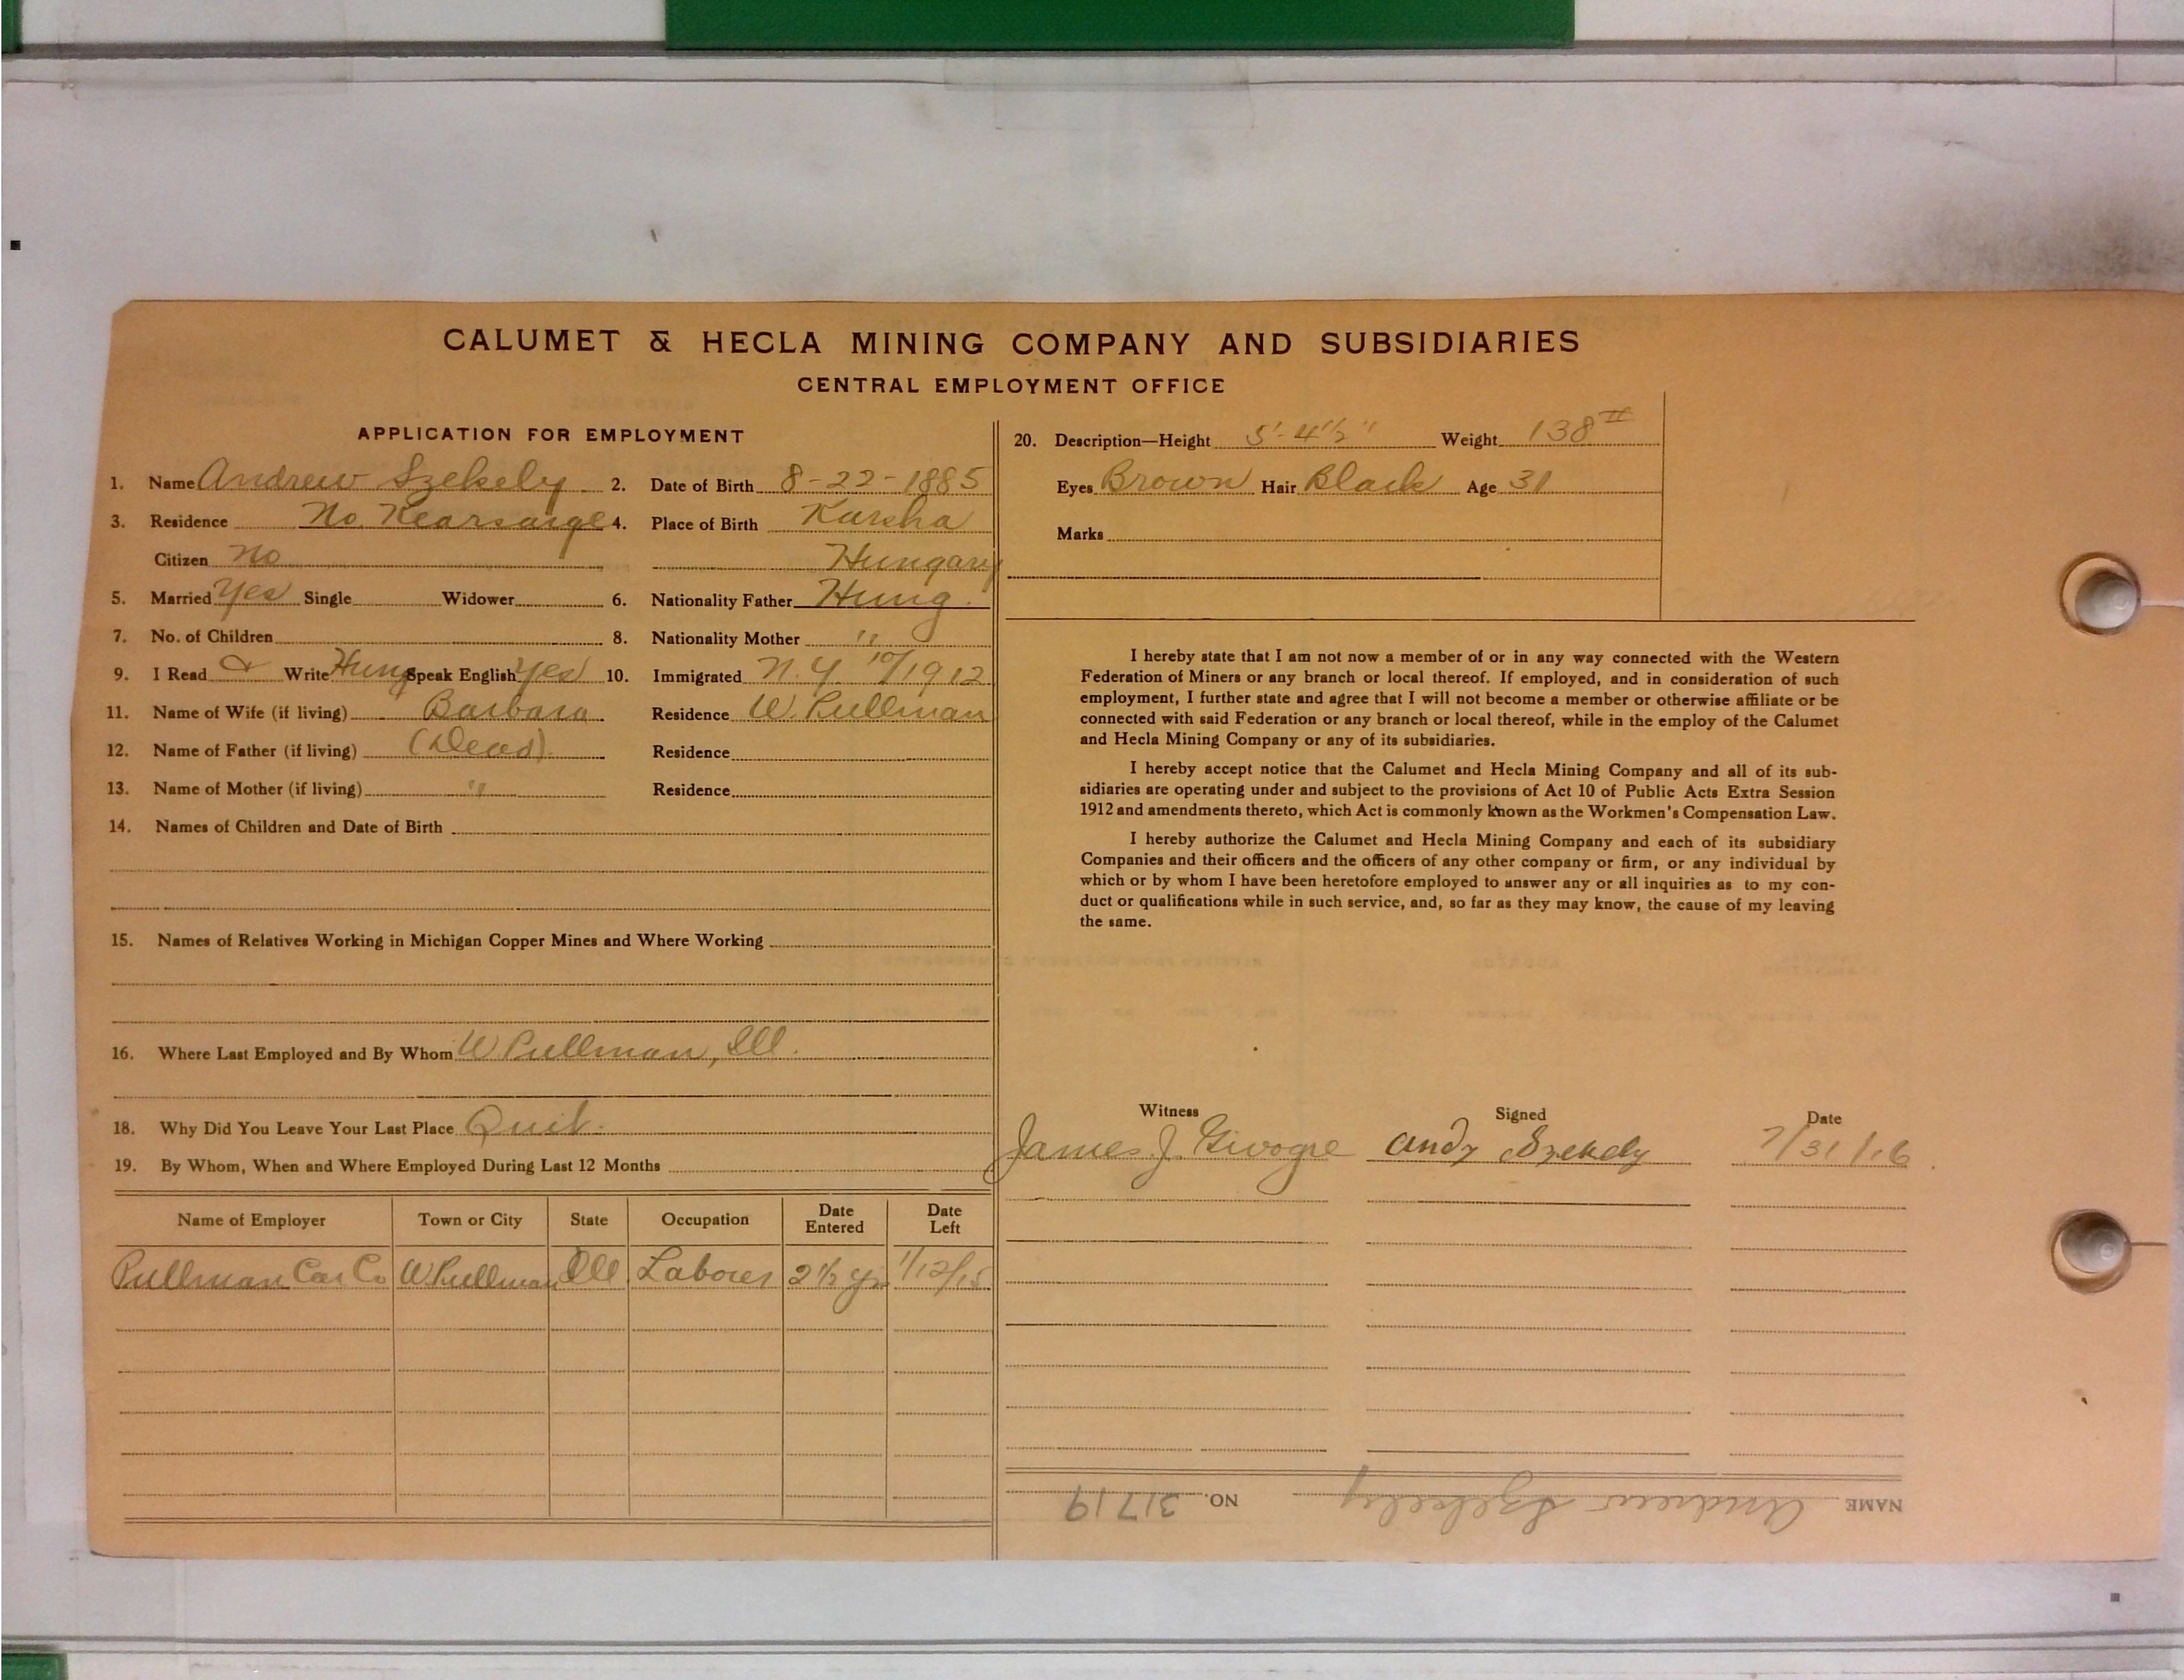 CALUMET & HECLA MINING COMPANY AND SUBSIDIARIES
CENTRAL EMPLOYMENT OFFICE
APPLICATION FOR EMPLOYMENT
1. Name Andrew Szekely 2. Date of Birth 8-22-1885
3. Residence No. Kearsarge 4. Place of Birth Karsha
Citizen No Hungary
5. Married Yes Single Widower 6. Nationality Father Hung.
7. No. of Children 8. Nationality Mother "
9. I Read & Write Hung Speak English Yes 10. Immigrated N.Y 10/1912
11. Name of Wife (if living) Barbara Residence W. Pullman
12. Name of Father (if living) (Dead) Residence
13. Name of Mother (if living) " Residence
14. Names of Children and Date of Birth
15. Names of Relatives Working in Michigan Copper Mines and Where Working
16. Where Last Employed and By Whom W Pullman, Ill.
18. Why Did You Leave Your Last Place Quit.
19. By Whom, When and Where Employed During Last 12 Months
Name of Employer Town or City State Occupation Date Entered Date Left
Pullman Car Co W Pullman Ill Laborer 2 1/2 yr 1/12/15
20. Description—Height 5'-4 1/2" Weight 138#
Eyes Brown Hair Black Age 31
Marks
I hereby state that I am not now a member of or in any way connected with the Western
Federation of Miners or any branch or local thereof. If employed, and in consideration of such
employment, I further state and agree that I will not become a member or otherwise affiliate or be
connected with said Federation or any branch or local thereof, while in the employ of the Calumet
and Hecla Mining Company or any of its subsidiaries.
I hereby accept notice that the Calumet and Hecla Mining Company and all of its sub-
sidiaries are operating under and subject to the provisions of Act 10 of Public Acts Extra Session
1912 and amendments thereto, which Act is commonly known as the Workmen's Compensation Law.
I hereby authorize the Calumet and Hecla Mining Company and each of its subsidiary
Companies and their officers and the officers of any other company or firm, or any individual by
which or by whom I have been heretofore employed to answer any or all inquiries as to my con-
duct or qualifications while in such service, and, so far as they may know, the cause of my leaving
the same.
Witness Signed Date
James J. Andy Szekely 7/31/16
NAME Andrew Szekely NO. 31719